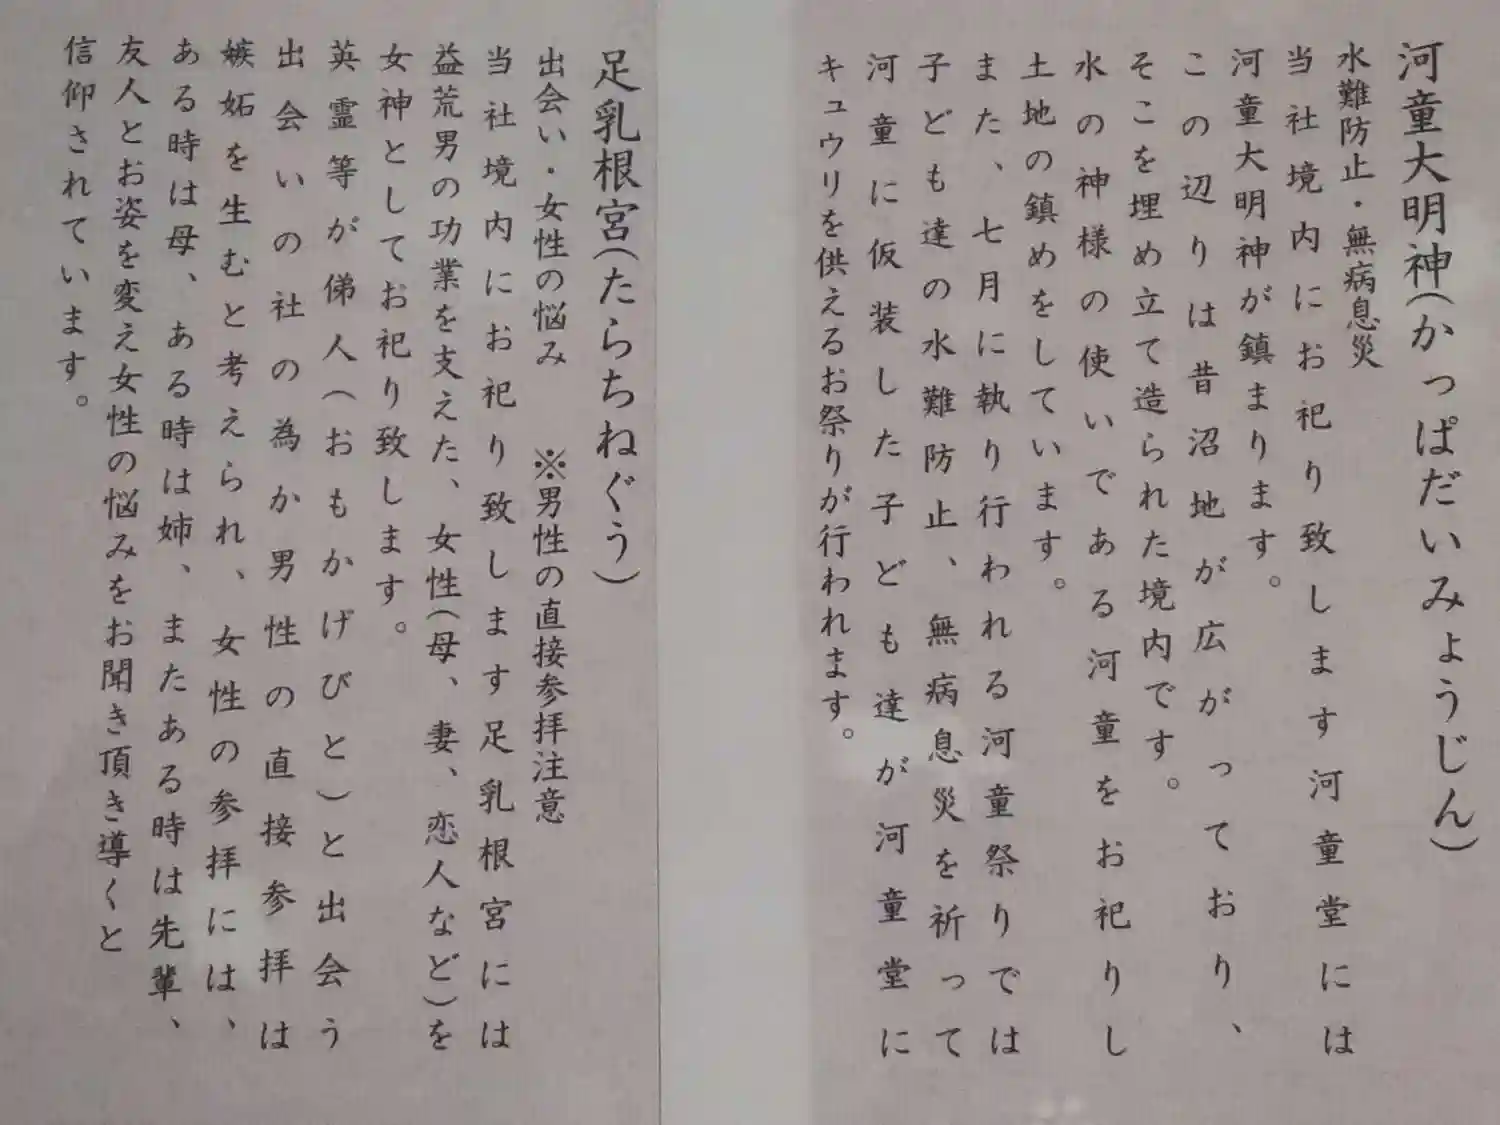 河童大明神(かっぱだいみょうじん)
水難防止・無病息災
当社境内にお祀り致します河童堂には
河童大明神が鎮まります。
この辺りは昔沼地が広がっており、
そこを埋め立て造られた境内です。
水の神様の使いである河童をお祀りし
土地の鎮めをしています。
また、七月に執り行われる河童祭りでは
子ども達の水難防止、無病息災を祈って
河童に仮装した子ども達が河童堂に
キュウリを供えるお祭りが行われます。
足乳根宮(たらちねぐう)
出会い・女性の悩み　※男性の直接参拝注意
当社境内にお祀り致します足乳根宮には
益荒男の功業を支えた、女性(母、妻、恋人など)を
女神としてお祀り致します。
英霊等が俤人(おもかげびと)と出会う
出会いの社の為か男性の直接参拝は
嫉妬を生むと考えられ、女性の参拝には、
ある時は母、ある時は姉、またある時は先輩、
友人とお姿を変え女性の悩みをお聞き頂き導くと
信仰されています。